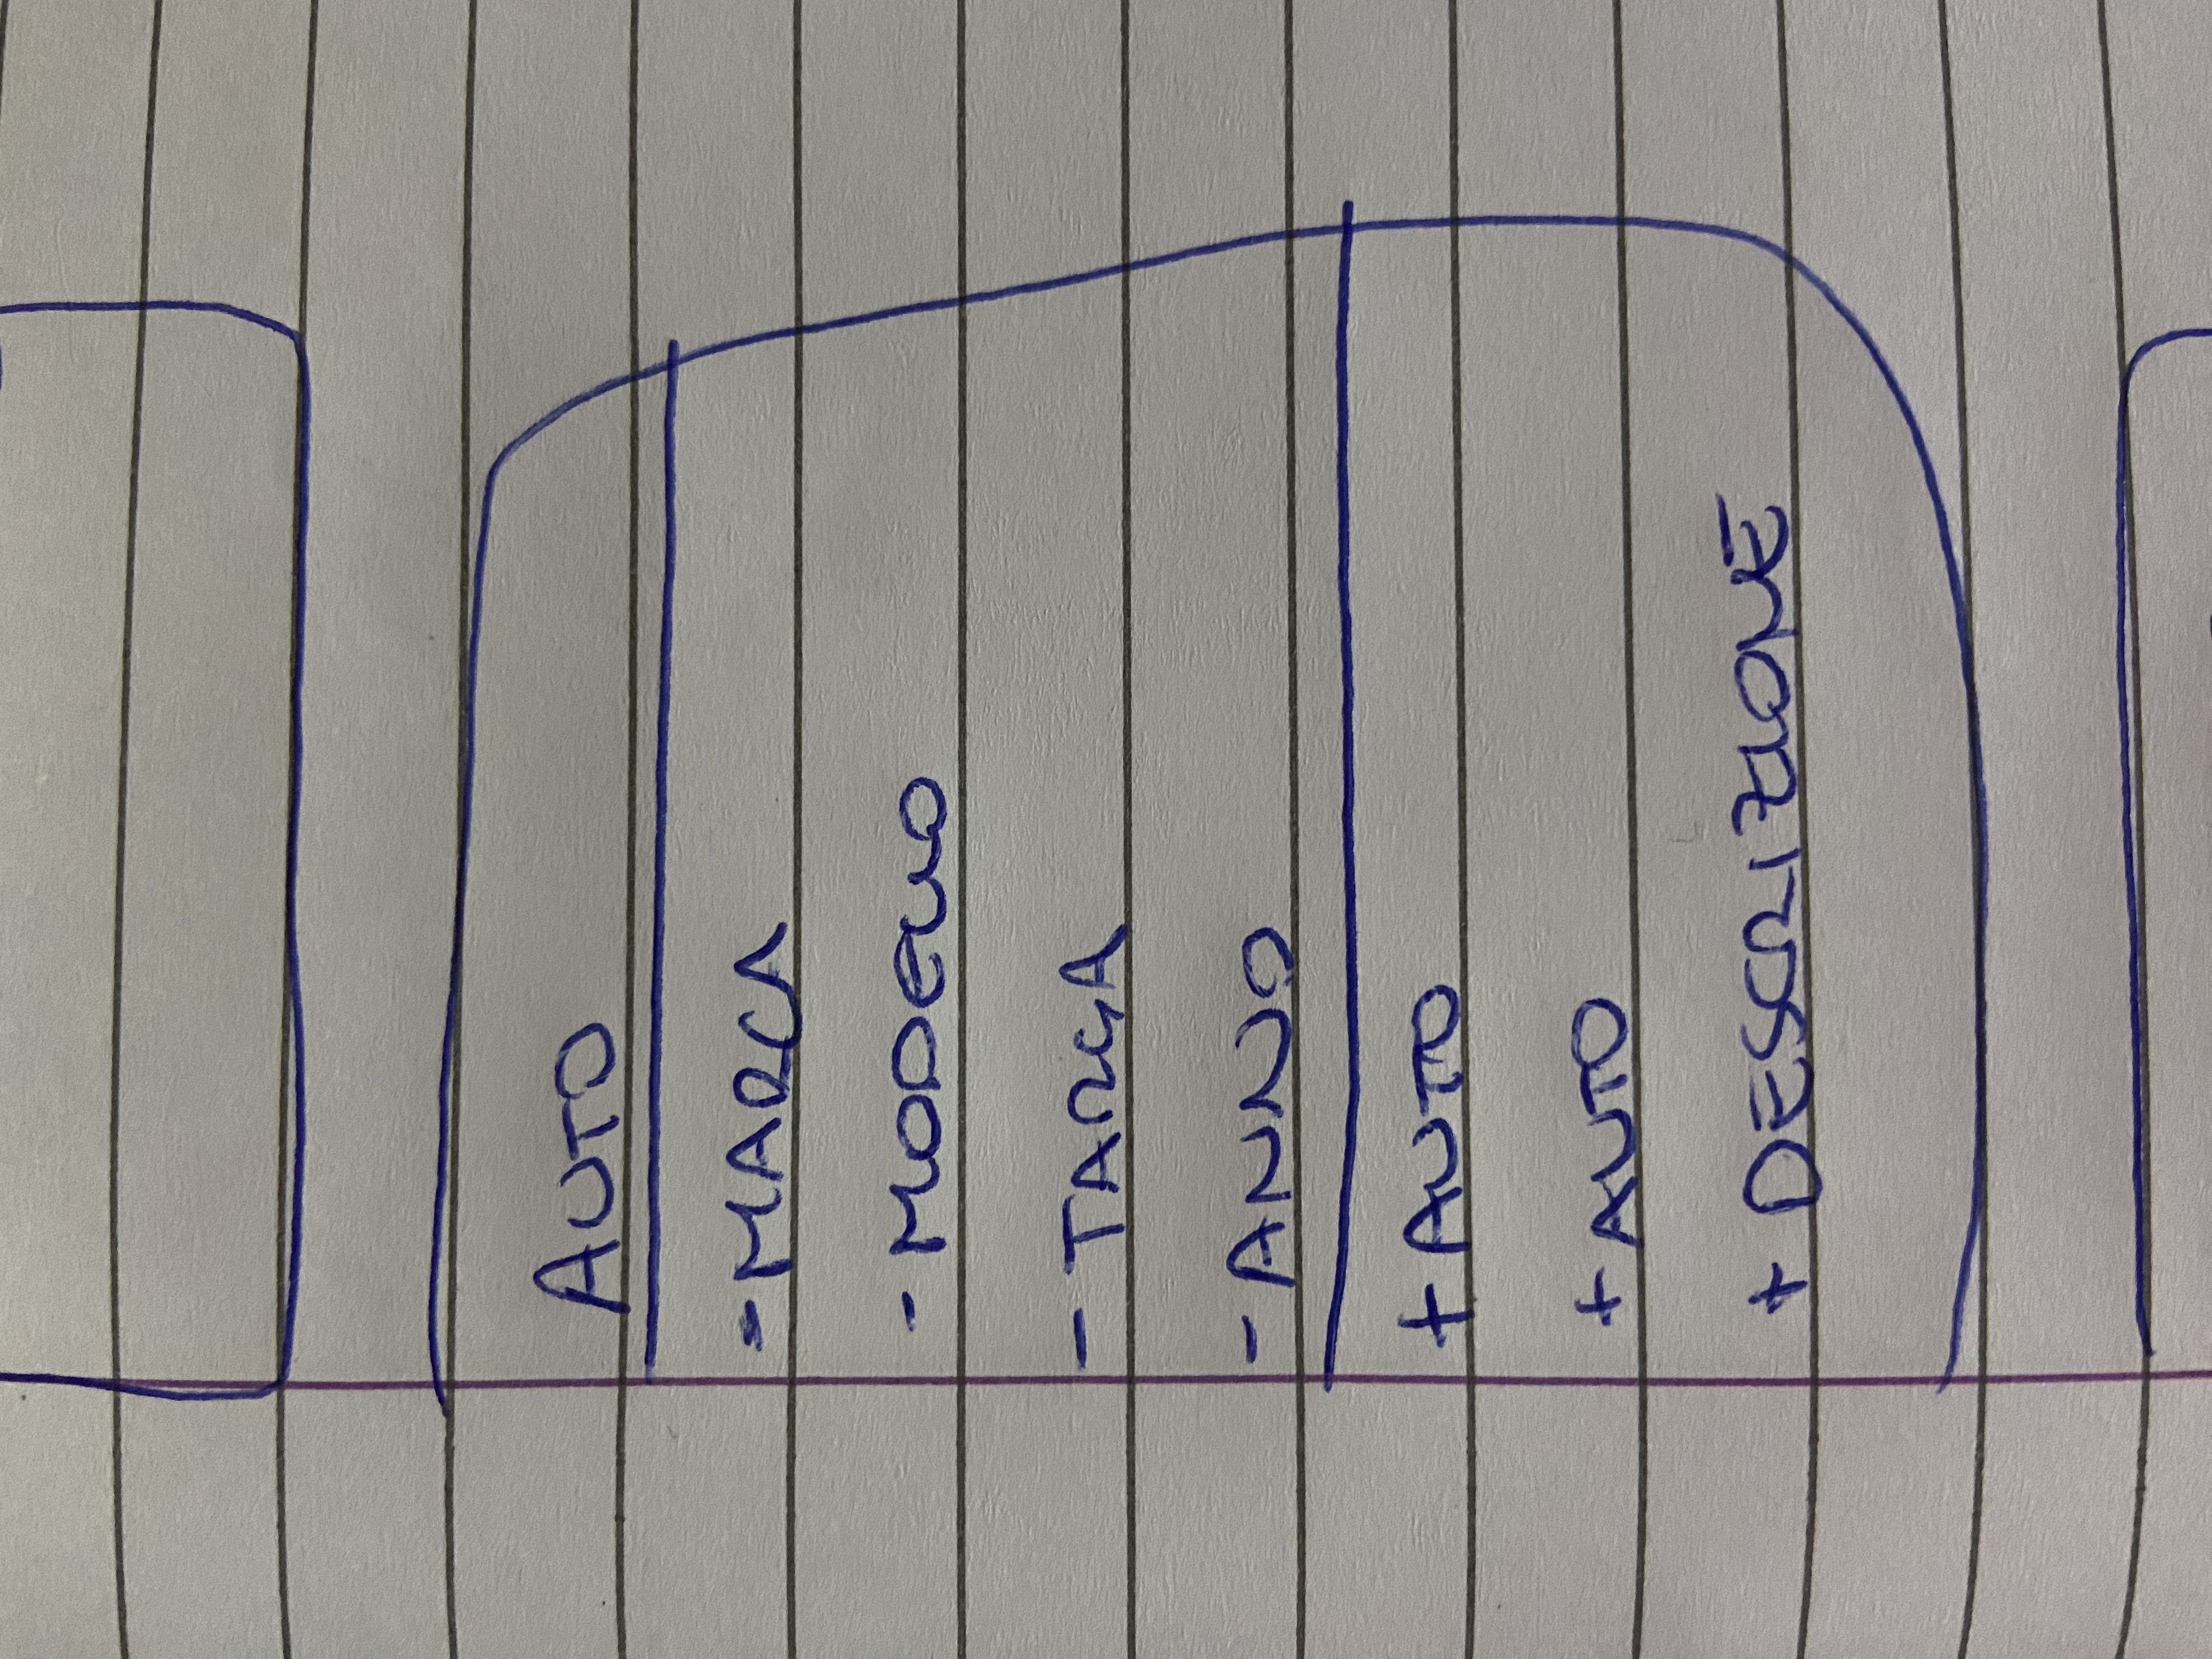 AUTO
- MARCA
- MODELLO
- TARGA
- ANNO
+ AUTO
+ AUTO
+ DESCRIZIONE